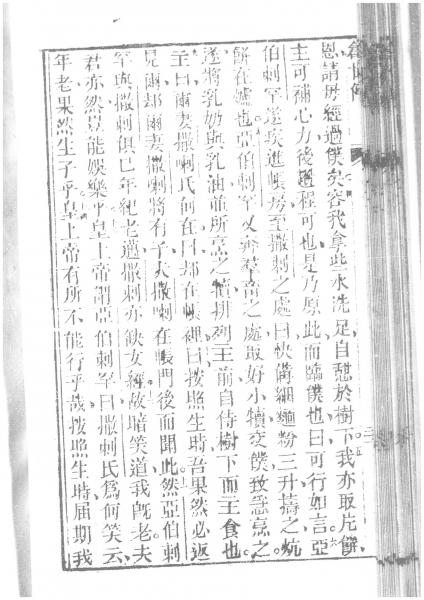 恩請毋經過僕矣容我拿些水洗足自憇於樹下我亦取片餅
主可補心力後遄程可也是乃原此而臨僕也曰可行如言亞
伯刺罕遂疾進帳房至撒刺之處曰快備細麵粉三升擣之炕
餅在爐也亞伯刺罕又奔羣畜之處取好小犢交僕致急烹之
遂將乳奶與乳油並所烹之犢排列主前自侍樹下而主食也
主曰爾妻撒喇氏何在曰却在帳裡曰按照生時吾果然必返
見爾却爾妻撒喇將有子矣撒喇在帳門後而聞此然亞伯刺
罕與撒刺俱已年紀老邁撒刺亦缺女經故暗笑道我既老夫
君亦然豈能娛樂乎皇上帝謂亞伯刺罕曰撒刺氏爲何笑云
年老果然生子乎皇上帝有所不能行乎哉按照生時届期我